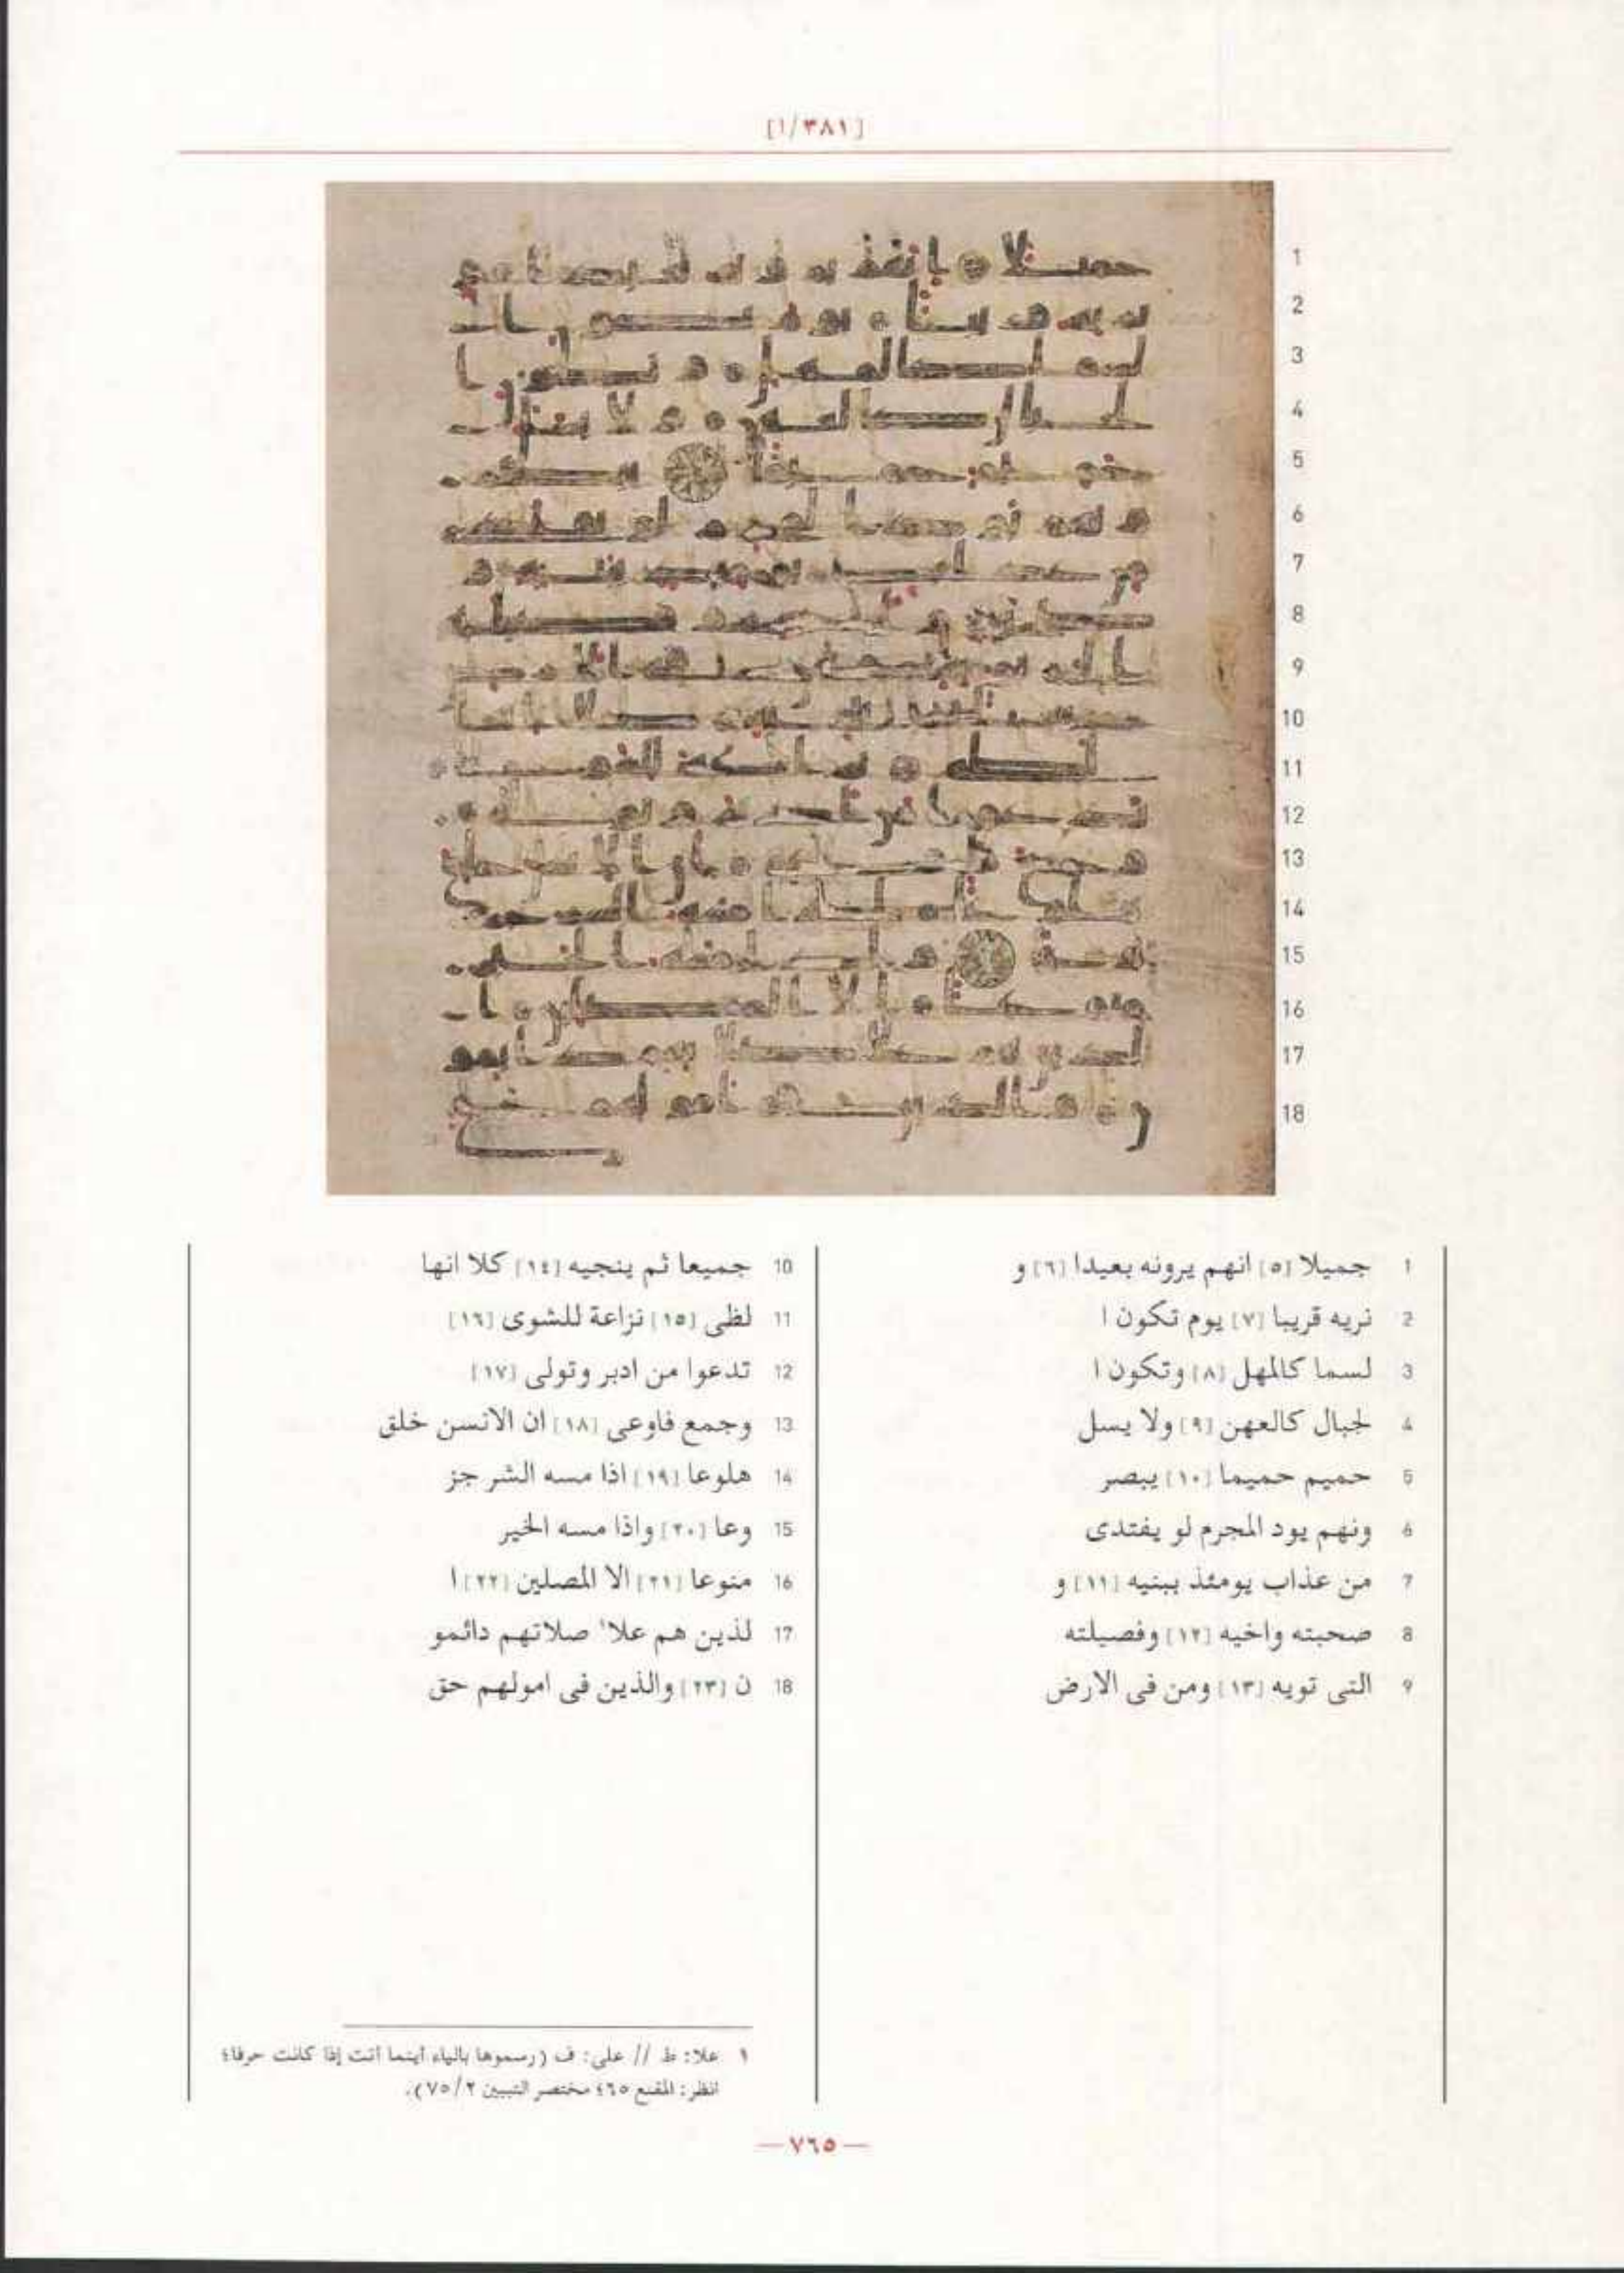 [١/٣٨١]
1 جميلا [٥] انهم يرونه بعيدا [٦] و
2 نريه قريبا [٧] يوم تكون ا
3 لسما كالمهل [٨] وتكون ا
4 لجبال كالعهن [٩] ولا يسل
5 حميم حميما [١٠] يبصر
6 ونهم يود المجرم لو يفتدى
7 من عذاب يومئذ ببنيه [١١] و
8 صحبته واخيه [١٢] وفصيلته
9 التى تويه [١٣] ومن فى الارض
10 جميعا ثم ينجيه [١٤] كلا انها
11 لظى [١٥] نزاعة للشوى [١٦]
12 تدعوا من ادبر وتولى [١٧]
13 وجمع فاوعى [١٨] ان الانسن خلق
14 هلوعا [١٩] اذا مسه الشر جز
15 وعا [٢٠] واذا مسه الخير
16 منوعا [٢١] الا المصلين [٢٢] ا
17 لذين هم علا١ صلاتهم دائمو
18 ن [٢٣] والذين فى امولهم حق
١ علا: ط // على: ف (رسموها بالياء أينما أتت إذا كانت حرفا؛
انظر: المقنع ٦٥؛ مختصر التبيين ٧٥/٢).
— ٧٦٥ —